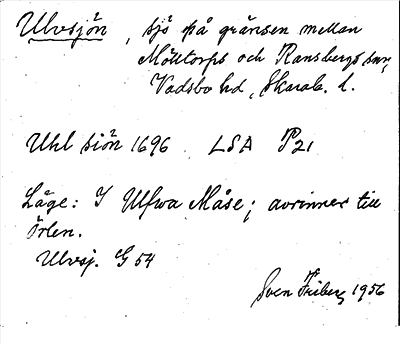 Ulvsjön, sjö på gränsen mellan
Mölltorps och Ransbergs snr,
Vadsbo hd, Skarab. l.
Uhl siön 1696 LSA P21
Läge: I Ulfwa Måse; avrinner till
Örlen.
Ulvsj. G 54
Sven Friberg 1956